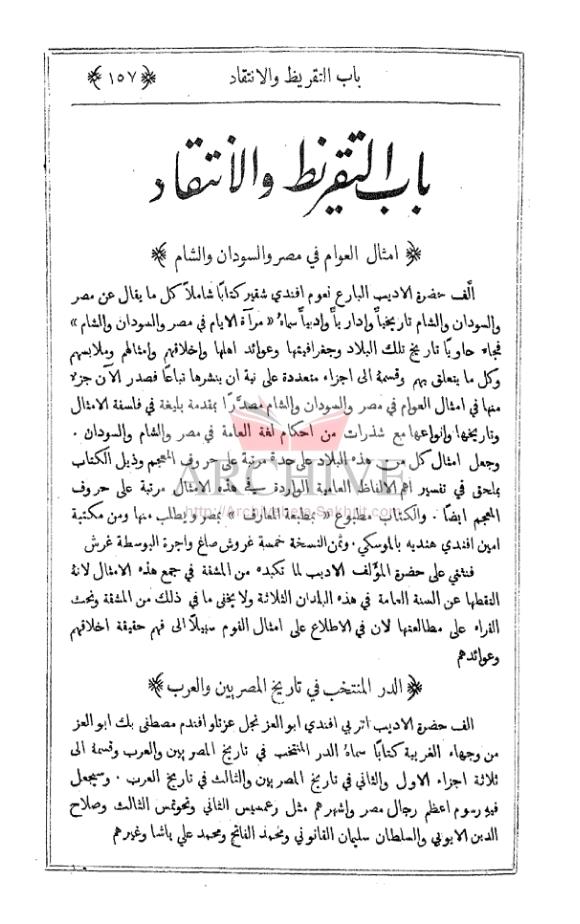 باب التقريظ والانتقاد ﴿١٥٧﴾
باب التقريظ والانتقاد
﴿ امثال العوام في مصر والسودان والشام ﴾
ألّف حضرة الاديب البارع نعوم افندي شقير كتابًا شاملاً كل ما يقال عن مصر
والسودان والشام تاريخياً وإدارياً وإدبياً سماهُ « مرآة الايام في مصر والسودان والشام »
فجاء حاويًا تاريخ تلك البلاد وجغرافيتها وعوائد اهلها وإخلاقهم وإمثالهم وملابسهم
وكل ما يتعلق بهم وقسمهُ الى اجزاء متعددة على نية ان ينشرها تباعًا فصدر الآن جزء
منها في امثال العوام في مصر والسودان والشام مصدَّرًا بمقدمة بليغة في فلسفة الامثال
وتاريخها وإنواعها مع شذرات من احكام لغة العامة في مصر والشام والسودان .
وجعل امثال كل من هذه البلاد على حدة مرتبة على حروف المعجم وذيل الكتاب
بملحق في تفسير اهم الالفاظ العامية الواردة في هذه الامثال مرتبة على حروف
المعجم ايضًا . والكتاب مطبوع « بمطبعة المعارف » بمصر ويطلب منها ومن مكتبية
امين افندي هنديه بالموسكي . وثمن النسخة خمسة غروش صاغ واجرة البوسطة غرش
فنثني على حضرة المؤلف الاديب لما تكبده من المشقة في جمع هذه الامثال لانهُ
التقطها عن السنة العامة في هذه البلدان الثلاثة ولا يخفى ما في ذلك من المشقة ونحث
القراء على مطالعتها لان في الاطلاع على امثال القوم سبيلاً الى فهم حقيقة اخلاقهم
وعوائدهم
﴿ الدر المنتخب في تاريخ المصريين والعرب ﴾
الف حضرة الاديب اتربي افندي ابو العز نجل عزتلو افندم مصطفى بك ابو العز
من وجهاء الغربية كتابًا سماهُ الدر المنتخب في تاريخ المصريين والعرب وقسمهُ الى
ثلاثة اجزاء الاول والثاني في تاريخ المصريين والثالث في تاريخ العرب . وسيجعل
فيه رسوم اعظم رجال مصر وإشهرهم مثل رعمسيس الثاني وتحوتمس الثالث وصلاح
الدين الايوبي والسلطان سليمان القانوني ومحمد الفاتح ومحمد علي باشا وغيرهم
ARCHIVE
http://Archivebeta.Sakhrit.com